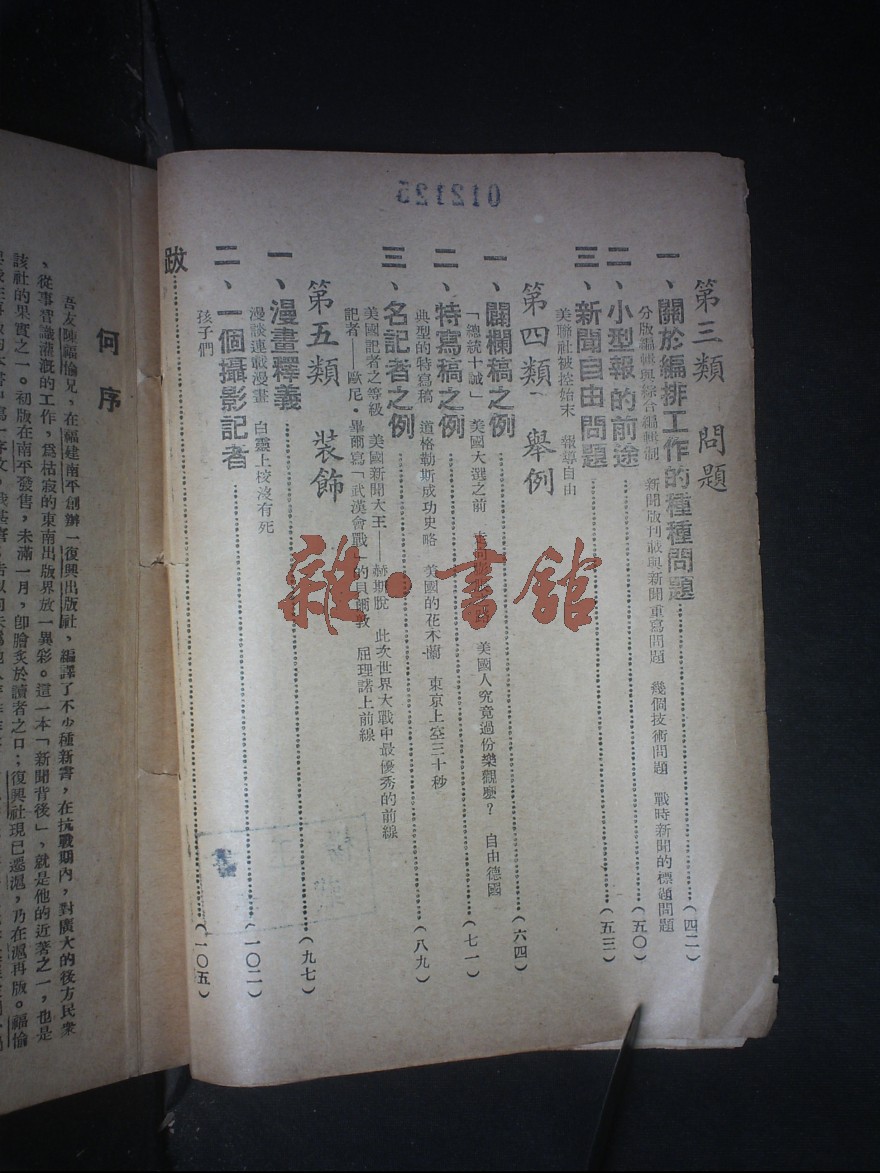 012125
第三類 問題
一、關於編排工作的種種問題(四二)
分版編輯與綜合編輯制 新聞版刊載與新聞重寫問題 幾個技術問題 戰時新聞的標題問題
二、小型報的前途(五〇)
三、新聞自由問題(五三)
美聯社被控始末 報導自由
第四類 舉例
一、闢欄稿之例(六四)
「總統十誡」 美國大選之前 美國人究竟過份樂觀麼？ 自由德國
二、特寫稿之例(七一)
典型的特寫稿 道格勒斯成功史略 美國的花木蘭 東京上空三十秒
三、名記者之例(八九)
美國記者之等級 美國新聞大王——赫斯脫 此次世界大戰中最優秀的前線
記者——歐尼·畢爾 寫「武漢會戰」的貝爾敦 屈理諾上前線
第五類 裝飾
一、漫畫釋義(九七)
漫談連載漫畫 白靈上校沒有死
二、一個攝影記者(一〇二)
孩子們
跋(一〇五)
雜·書館
何序
吾友陳福愉兄，在福建南平創辦「復興出版社，編譯了不少種新書，在抗戰期內，對廣大的後方民衆
，從事智識灌溉的工作，爲枯寂的東南出版界放一異彩。這一本「新聞背後」，就是他的近著之一，也是
該社的果實之一。初版在南平發售，未滿一月，卽膾炙於讀者之口；復興社現已遷滬，乃在滬再版。福愉